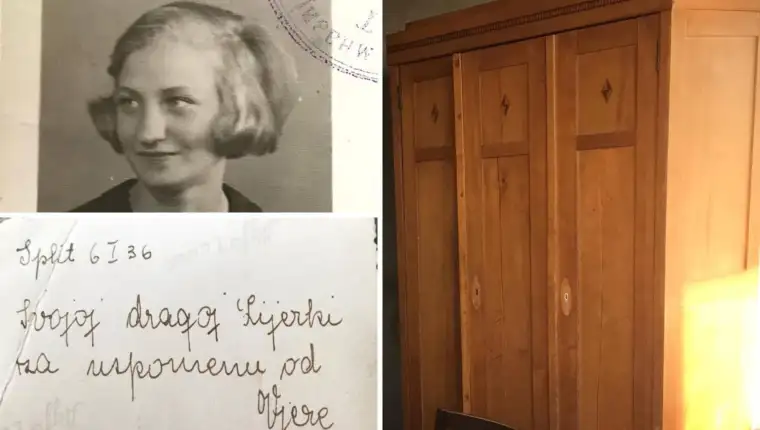 Split 6 I 36
Svojoj dragoj
za uspomenu od
Vjere